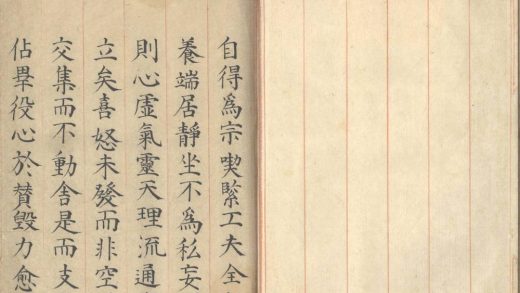 自得爲宗喫緊工夫全
養端居靜坐不爲私妄
則心虛氣靈天理流通
立矣喜怒未發而非空
交集而不動舍是而支
佔畢役心於賛毀力愈